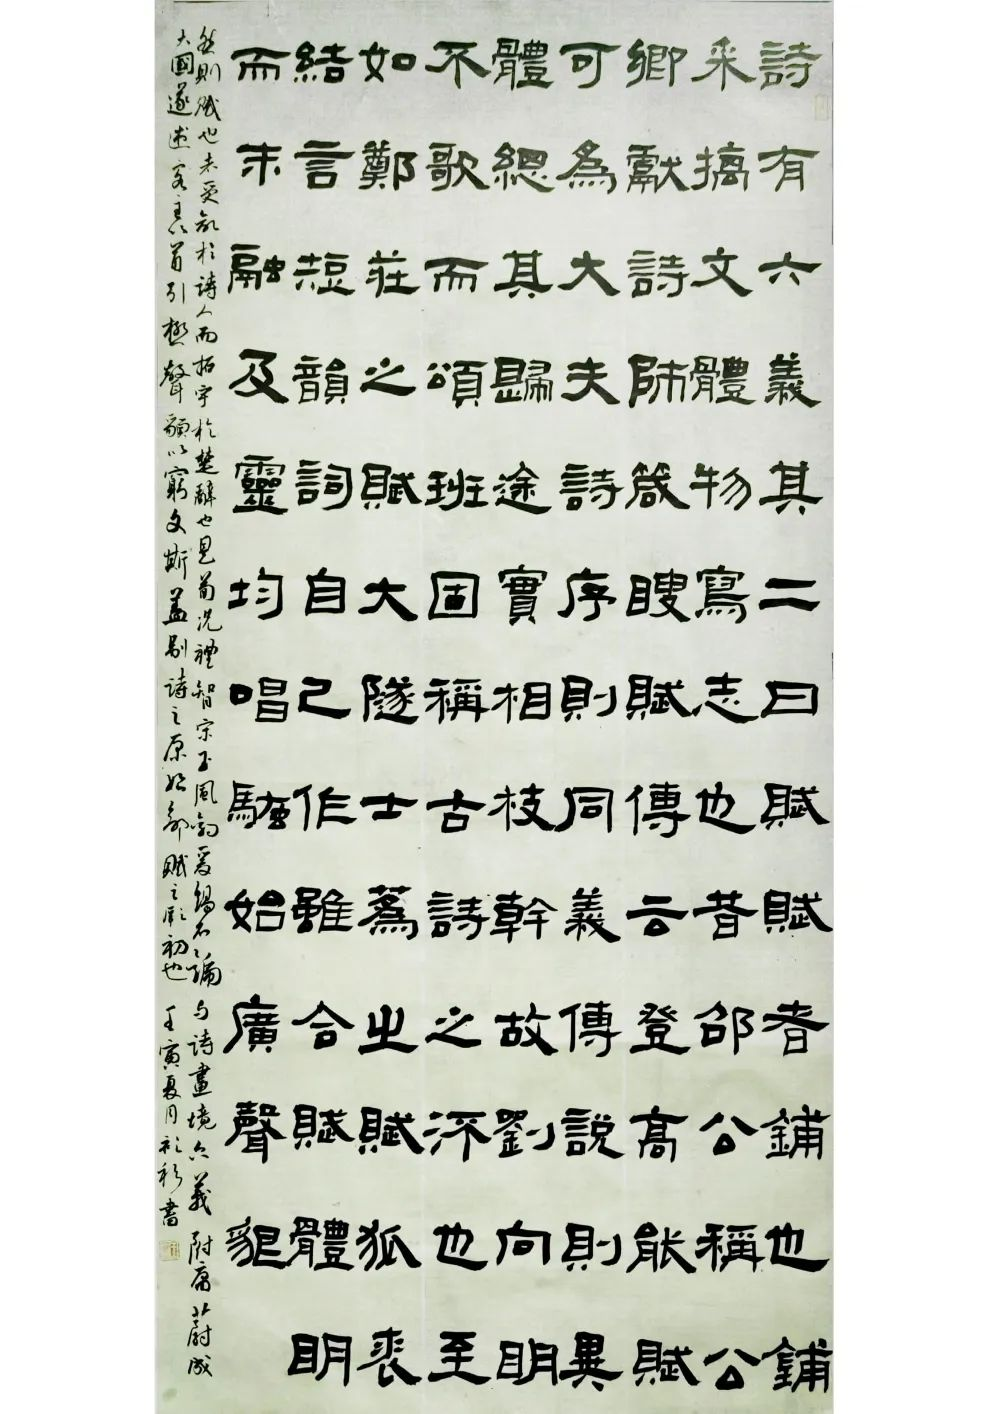 詩有六義其二曰賦賦者鋪也鋪
采摛文體物寫志也昔邵公稱公
卿獻詩師箴瞍賦傳云登高能賦
可為大夫詩序則同義傳說則異
體總其歸途實相枝幹故劉向明
不歌而頌班固稱古詩之流也至
如鄭莊之賦大隧士蒍之賦狐裘
結言短韻詞自己作雖合賦體明
而未融及靈均唱騷始廣聲貌
然則賦也者受命於詩人而拓宇於楚辭也是荀況禮智宋玉風釣爰錫名號与詩畫境六義附庸蔚成
大國遂述客主以首引極聲貌以窮文斯蓋別詩之原始命賦之厥初也 壬寅夏月書